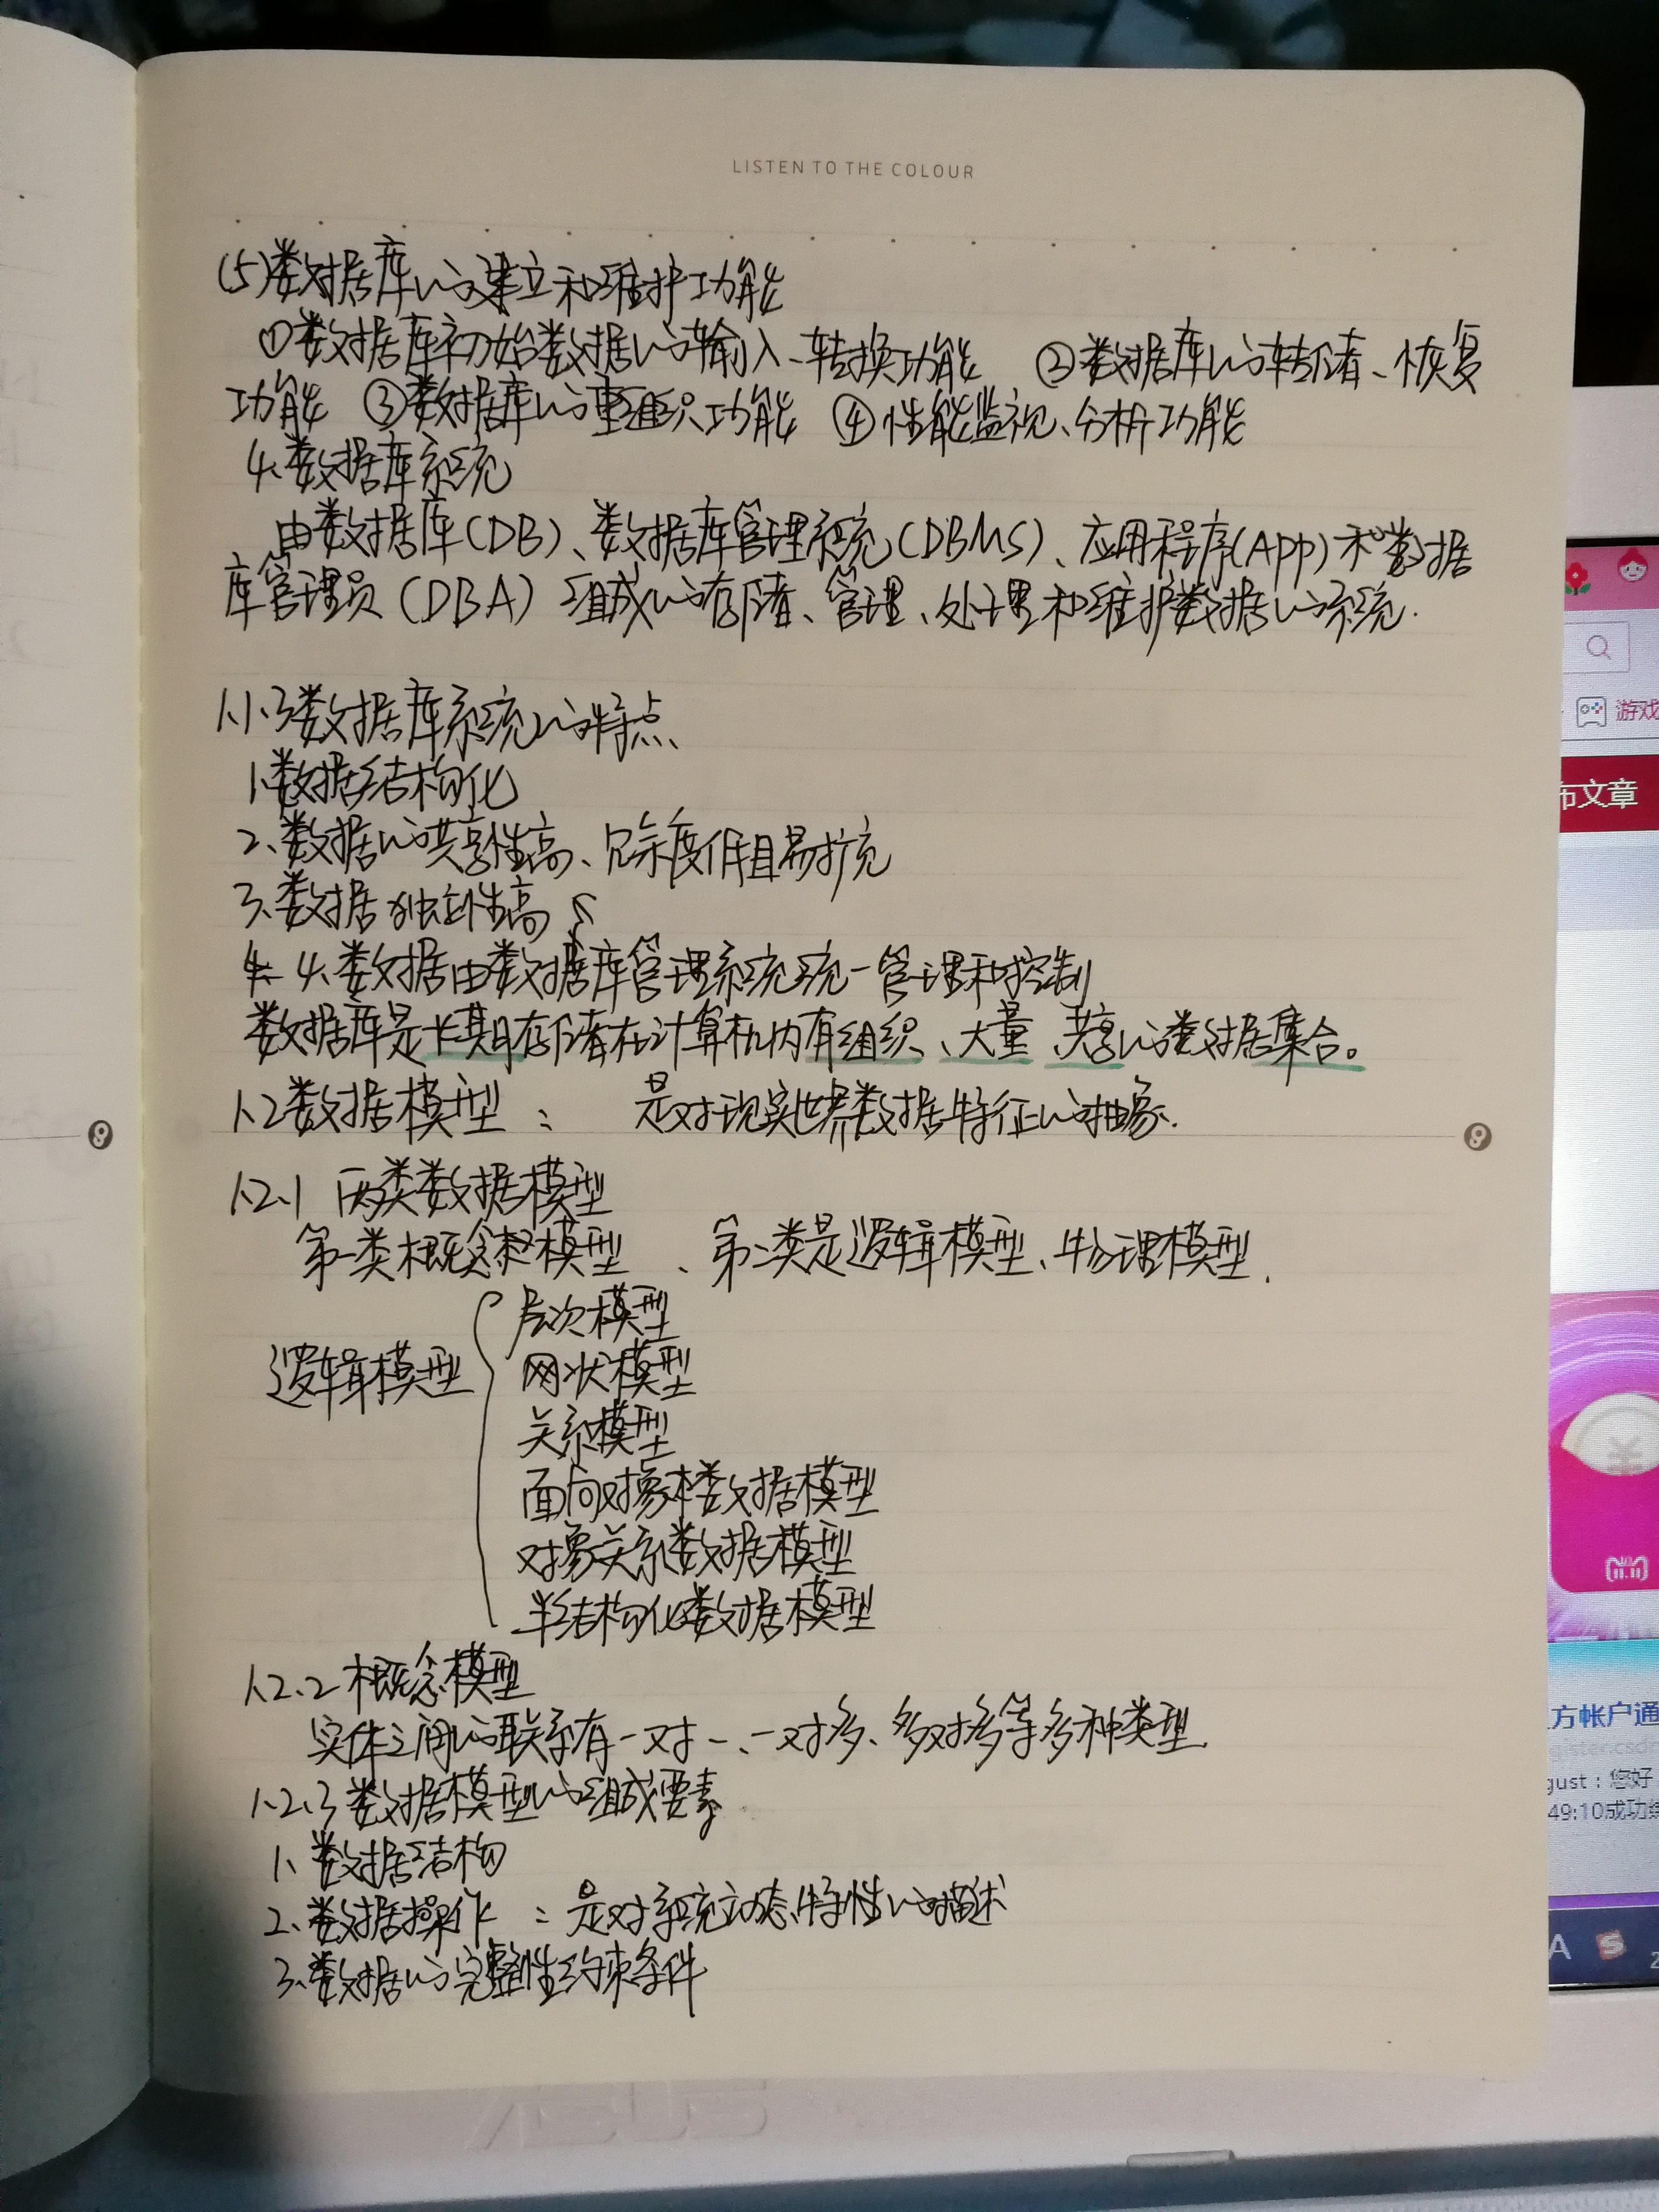 LISTEN TO THE COLOUR
(5)数据库的建立和维护功能
①数据库初始数据的输入、转换功能 ②数据库的转储、恢复
功能 ③数据库的重组织功能 ④性能监视、分析功能
4、数据库系统
由数据库(DB)、数据库管理系统(DBMS)、应用程序(APP)和数据
库管理员(DBA)组成的存储、管理、处理和维护数据的系统.
1.1.3数据库系统的特点
1、数据结构化
2、数据的共享性高、冗余度低且易扩充
3、数据独立性高
4、数据由数据库管理系统统一管理和控制
数据库是长期存储在计算机内有组织、大量、共享的数据集合。
1.2数据模型: 是对现实世界数据特征的抽象.
1.2.1 两类数据模型
第一类概念模型、第二类是逻辑模型、物理模型.
层次模型
逻辑模型 网状模型
关系模型
面向对象数据模型
对象关系数据模型
半结构化数据模型
1.2.2 概念模型
实体之间的联系有一对一、一对多、多对多等多种类型.
1.2.3 数据模型的组成要素
1、数据结构
2、数据操作 :是对系统动态特性的描述
3、数据的完整性约束条件
游戏
布文章
11.11
方帐户通
gister.csdn
gust:您好
49:10成功
A
S
9
9